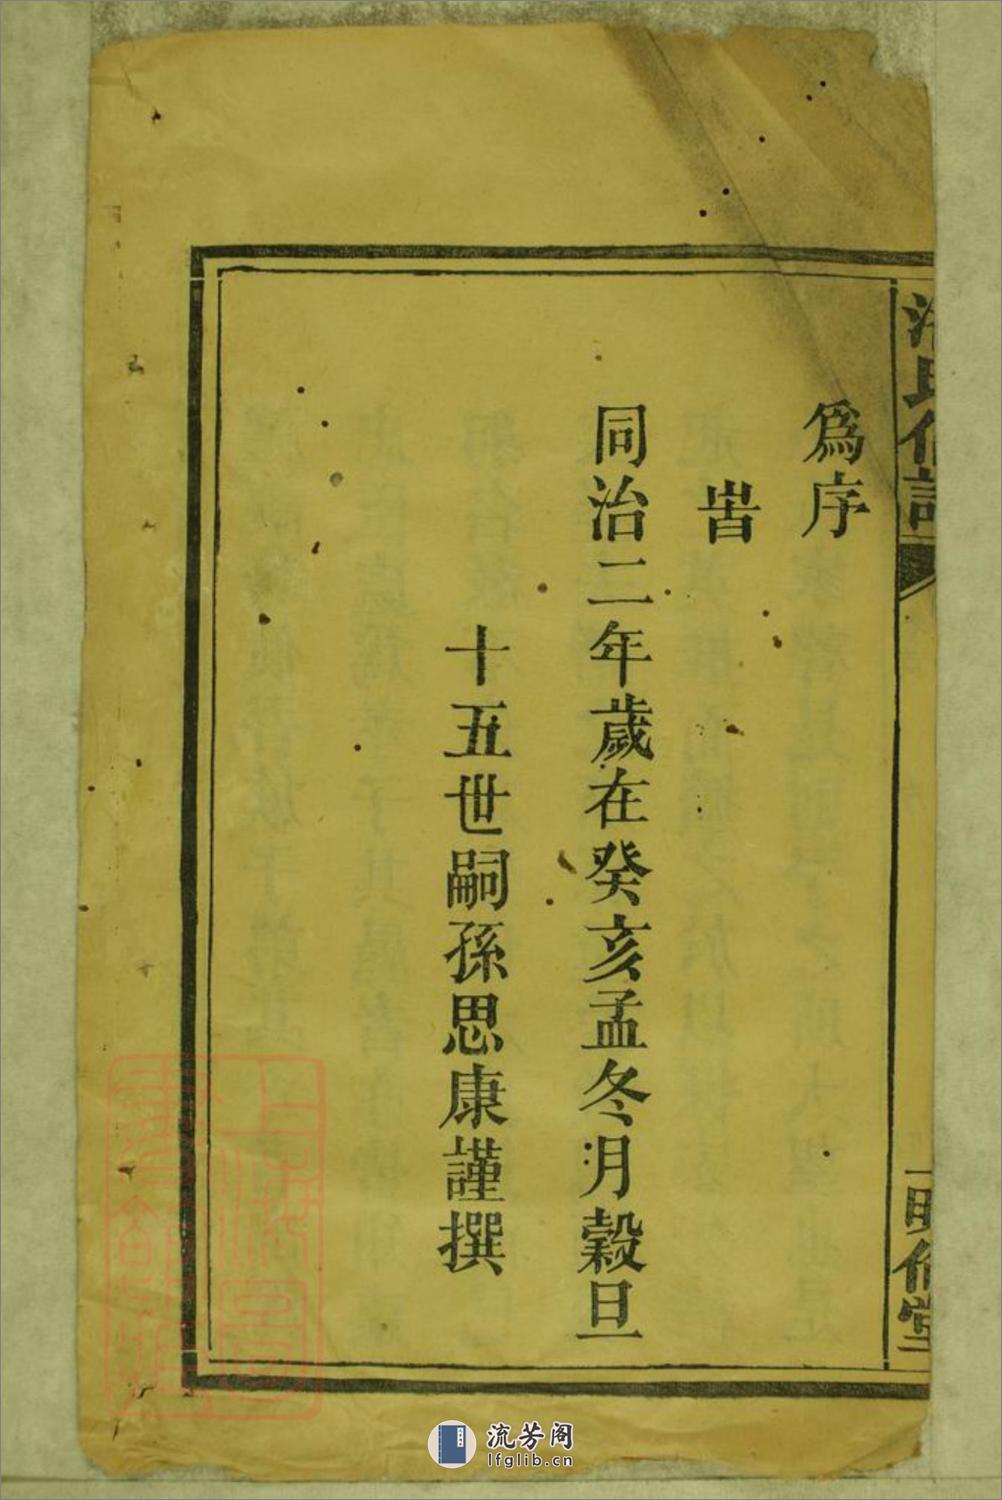 為序
旹
同治二年歲在癸亥孟冬月穀旦
十五世嗣孫思康謹撰
流芳阁
lfglib.cn